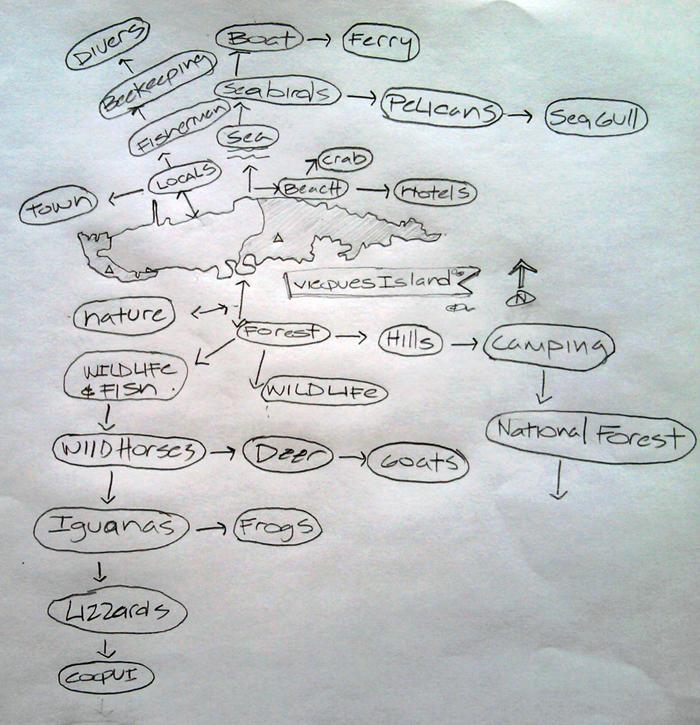 Divers
Boat
Ferry
Beekeeping
Seabirds
Pelicans
Sea Gull
Fisherman
Sea
Crab
LOCALS
Beach
Hotels
Town
ViecpuesIsland
N
nature
Forest
Hills
Camping
WILDLIFE
& FISH.
WILDLIFE
National Forest
Wild Horses
Deer
Goats
Iguanas
Frogs
Lizzards
COQPUI